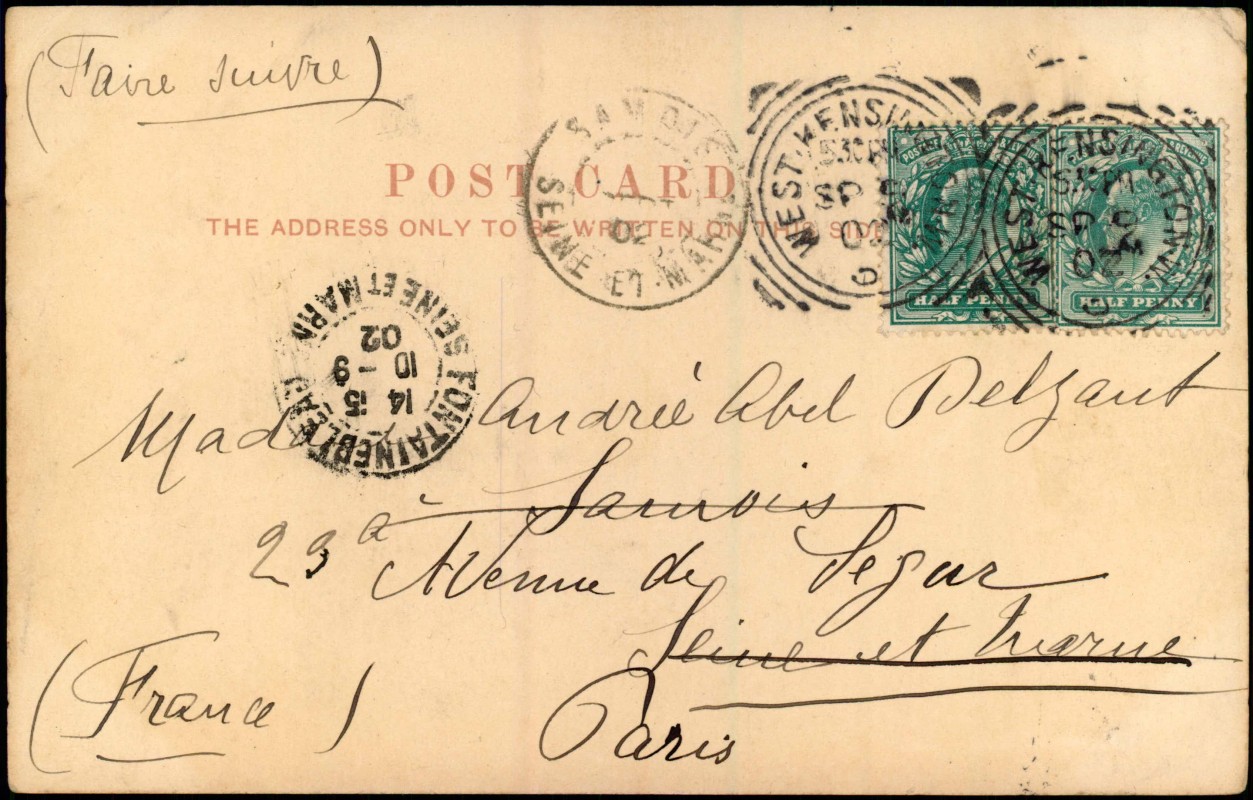 (Faire suivre)
POST CARD
THE ADDRESS ONLY TO BE WRITTEN ON THIS SIDE
SEINE ET MARNE
02
WEST KENSINGTON
5.30 PM
SP 8
02
WEST KENSINGTON
5.30 PM
SP 8
02
HALF PENNY
HALF PENNY
FONTAINEBLEAU SEINE ET MARNE
14 15
10 - 9
02
Andrée Abel Delzant
à Samois
23 Avenue de Segur
Seine et Marne
(France)
Paris